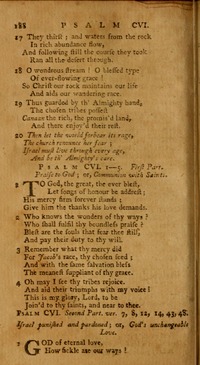 188 PSALM CVI.
17 They thirst; and waters from the rock
In rich abundance flow,
And following still the course they took
Ran all the desert through.
18 O wondrous stream! O blessed type
Of ever-flowing grace!
So Christ our rock maintains our life
And aids our wandering race.
19 Thus guarded by th' Almighty hand,
The chosen tribes possest
Canaan the rich, the promis'd land,
And there enjoy'd their rest.
20 Then let the world forbear its rage,
The church renounce her fear;
Israel must live through every age,
And be th' Almighty's care.
PSALM CVI. 1—5. First Part.
Praise to God; or, Communion with Saints.
TO God, the great, the ever blest,
Let songs of honour be addrest;
His mercy firm forever stands;
Give him the thanks his love demands.
2 Who knows the wonders of thy ways?
Who shall fulfil thy boundless praise?
Blest are the souls that fear thee still,
And pay their duty to thy will.
3 Remember what thy mercy did
For Jacob's race, thy chosen seed;
And with the same salvation bless
The meanest suppliant of thy grace.
4 Oh may I see thy tribes rejoice,
And aid their triumphs with my voice!
This is my glory, Lord, to be
Join'd to thy saints, and near to thee.
PSALM CVI. Second Part. ver. 7, 8, 12, 14, 43, 48.
Israel punished and pardoned; or, God's unchangeable
Love.
GOD of eternal love,
How fickle are our ways!